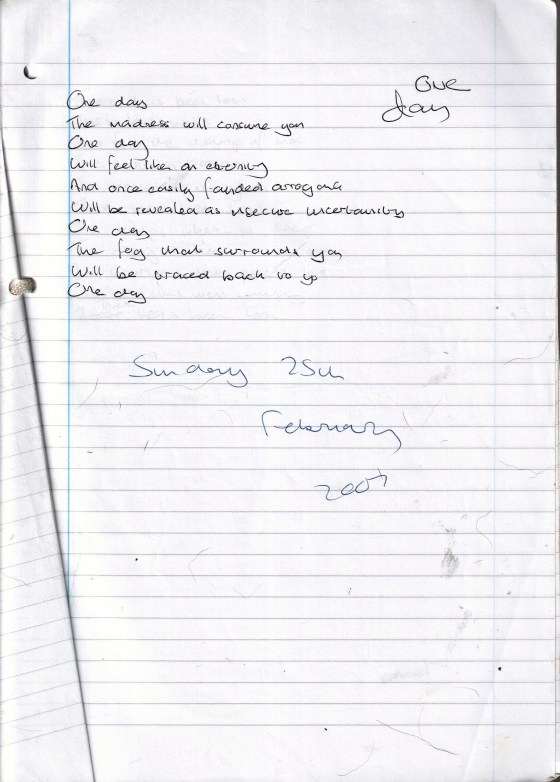 One
day
One day
The madness will consume you
One day
Will feel like an eternity
And once easily arrogance
Will be revealed as insecure uncertainity
One day
The fog that surrounds you
Will be traced back to you
One day
Sunday 25th
February
2007